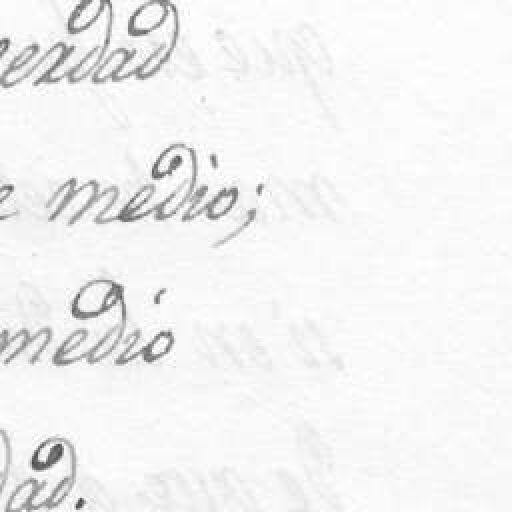 verdad
e medio;
medio
dad.